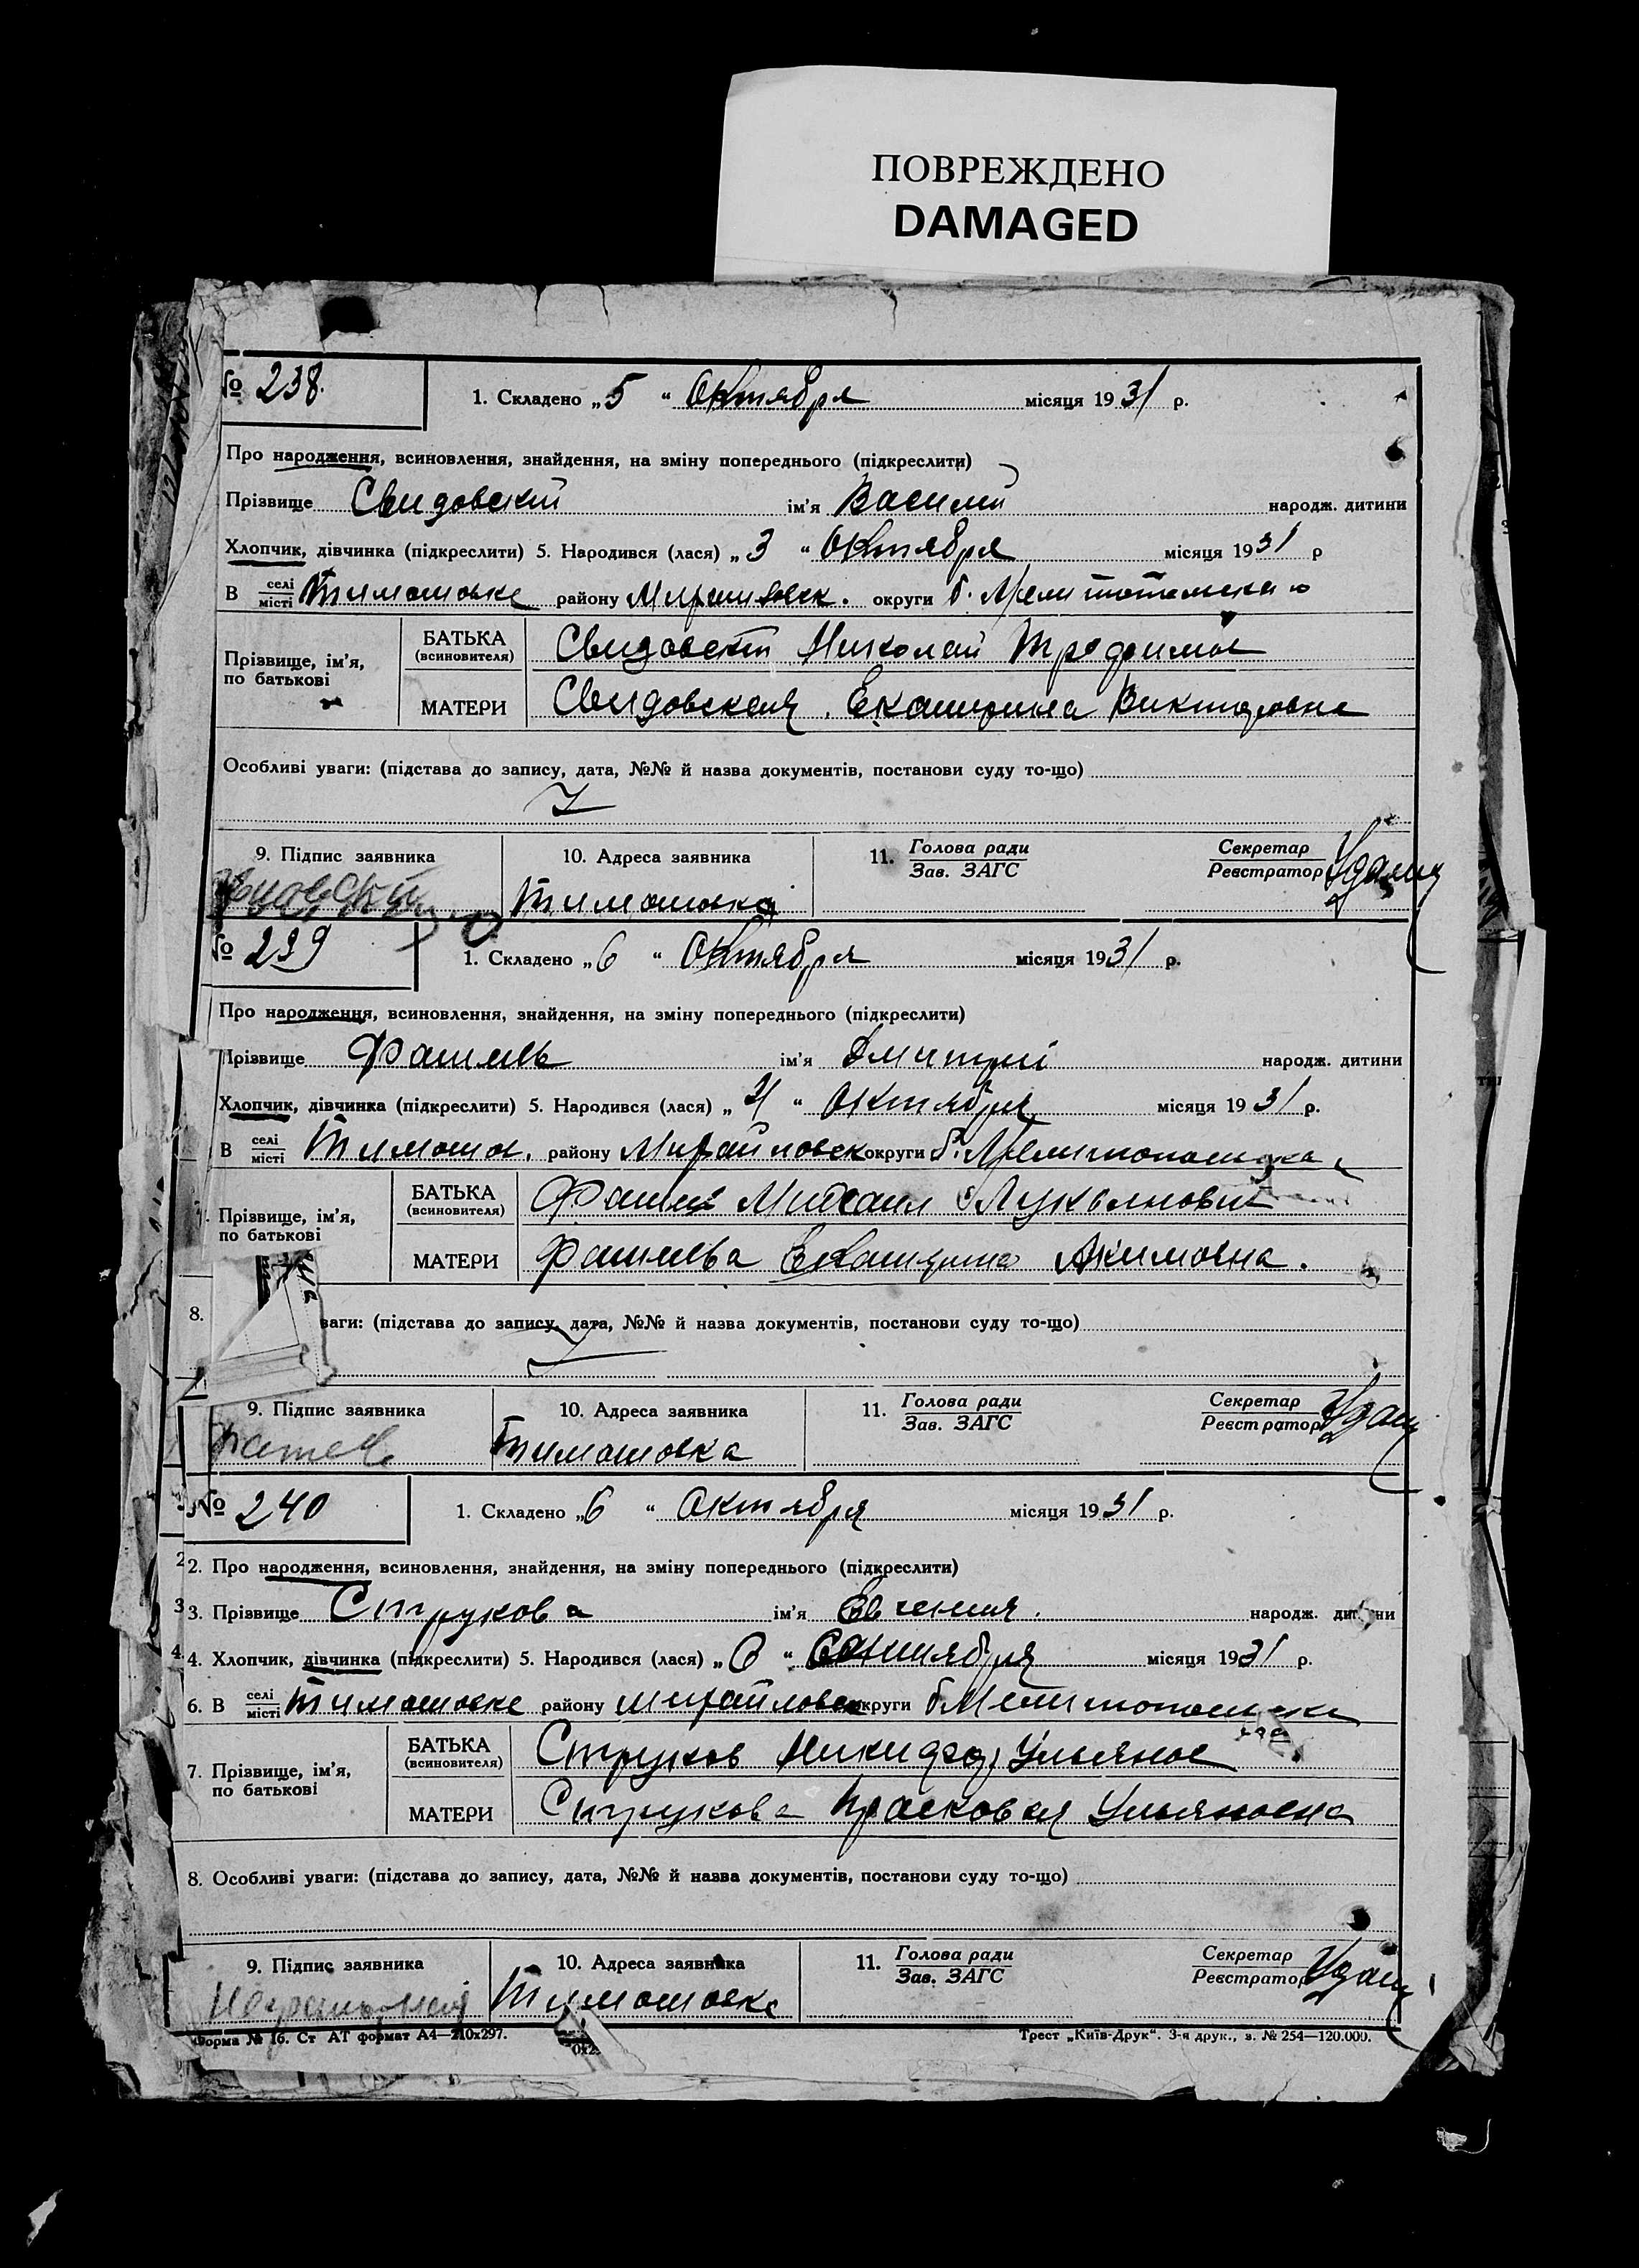 ПОВРЕЖДЕНО
DAMAGED
№ 238. 1. Складено „5“ Октября місяця 1931 р.
Про народження, всиновлення, знайдення, на зміну попереднього (підкреслити)
Прізвище Свидовский ім'я Василий народж. дитини
Хлопчик, дівчинка (підкреслити) 5. Народився (лася) „3“ Октября місяця 1931 р
В селі місті Тимошовке району округи б.
Прізвище, ім'я, по батькові
БАТЬКА (всиновителя) Свидовский Николай Трофимов
МАТЕРИ Свидовская Екатерина Викторовна
Особливі уваги: (підстава до запису, дата, №№ й назва документів, постанови суду то-що)
9. Підпис заявника 10. Адреса заявника 11. Голова ради Зав. ЗАГС Секретар Реєстратор
Тимошовка
№ 239 1. Складено „6“ Октября місяця 1931 р.
Про народження, всиновлення, знайдення, на зміну попереднього (підкреслити)
Прізвище ім'я Дмитрий народж. дитини
Хлопчик, дівчинка (підкреслити) 5. Народився (лася) „4“ Октября місяця 1931 р.
В селі місті Тимошов. району Михайловск округи б.
Прізвище, ім'я, по батькові
БАТЬКА (всиновителя) Михаил Лукьянович
МАТЕРИ Екатерина Акимовна.
8. ваги: (підстава до запису, дата, №№ й назва документів, постанови суду то-що)
9. Підпис заявника 10. Адреса заявника 11. Голова ради Зав. ЗАГС Секретар Реєстратор
Тимошовка
№ 240 1. Складено „6“ Октября місяця 1931 р.
2. Про народження, всиновлення, знайдення, на зміну попереднього (підкреслити)
3. Прізвище Струкова ім'я Евгения. народж. дитини
4. Хлопчик, дівчинка (підкреслити) 5. Народився (лася) „ “ місяця 1931 р.
6. В селі місті Тимошовке району Михайловск округи б.
7. Прізвище, ім'я, по батькові
БАТЬКА (всиновителя) Струков Никифор Ульянов
МАТЕРИ Струкова Прасковея Ульяновна
8. Особливі уваги: (підстава до запису, дата, №№ й назва документів, постанови суду то-що)
9. Підпис заявника 10. Адреса заявника 11. Голова ради Зав. ЗАГС Секретар Реєстратор
Тимошовке
Форма № 16. Ст АТ формат А4—210х297. Трест „Київ-Друк“. 3-я друк., з. № 254—120.000.